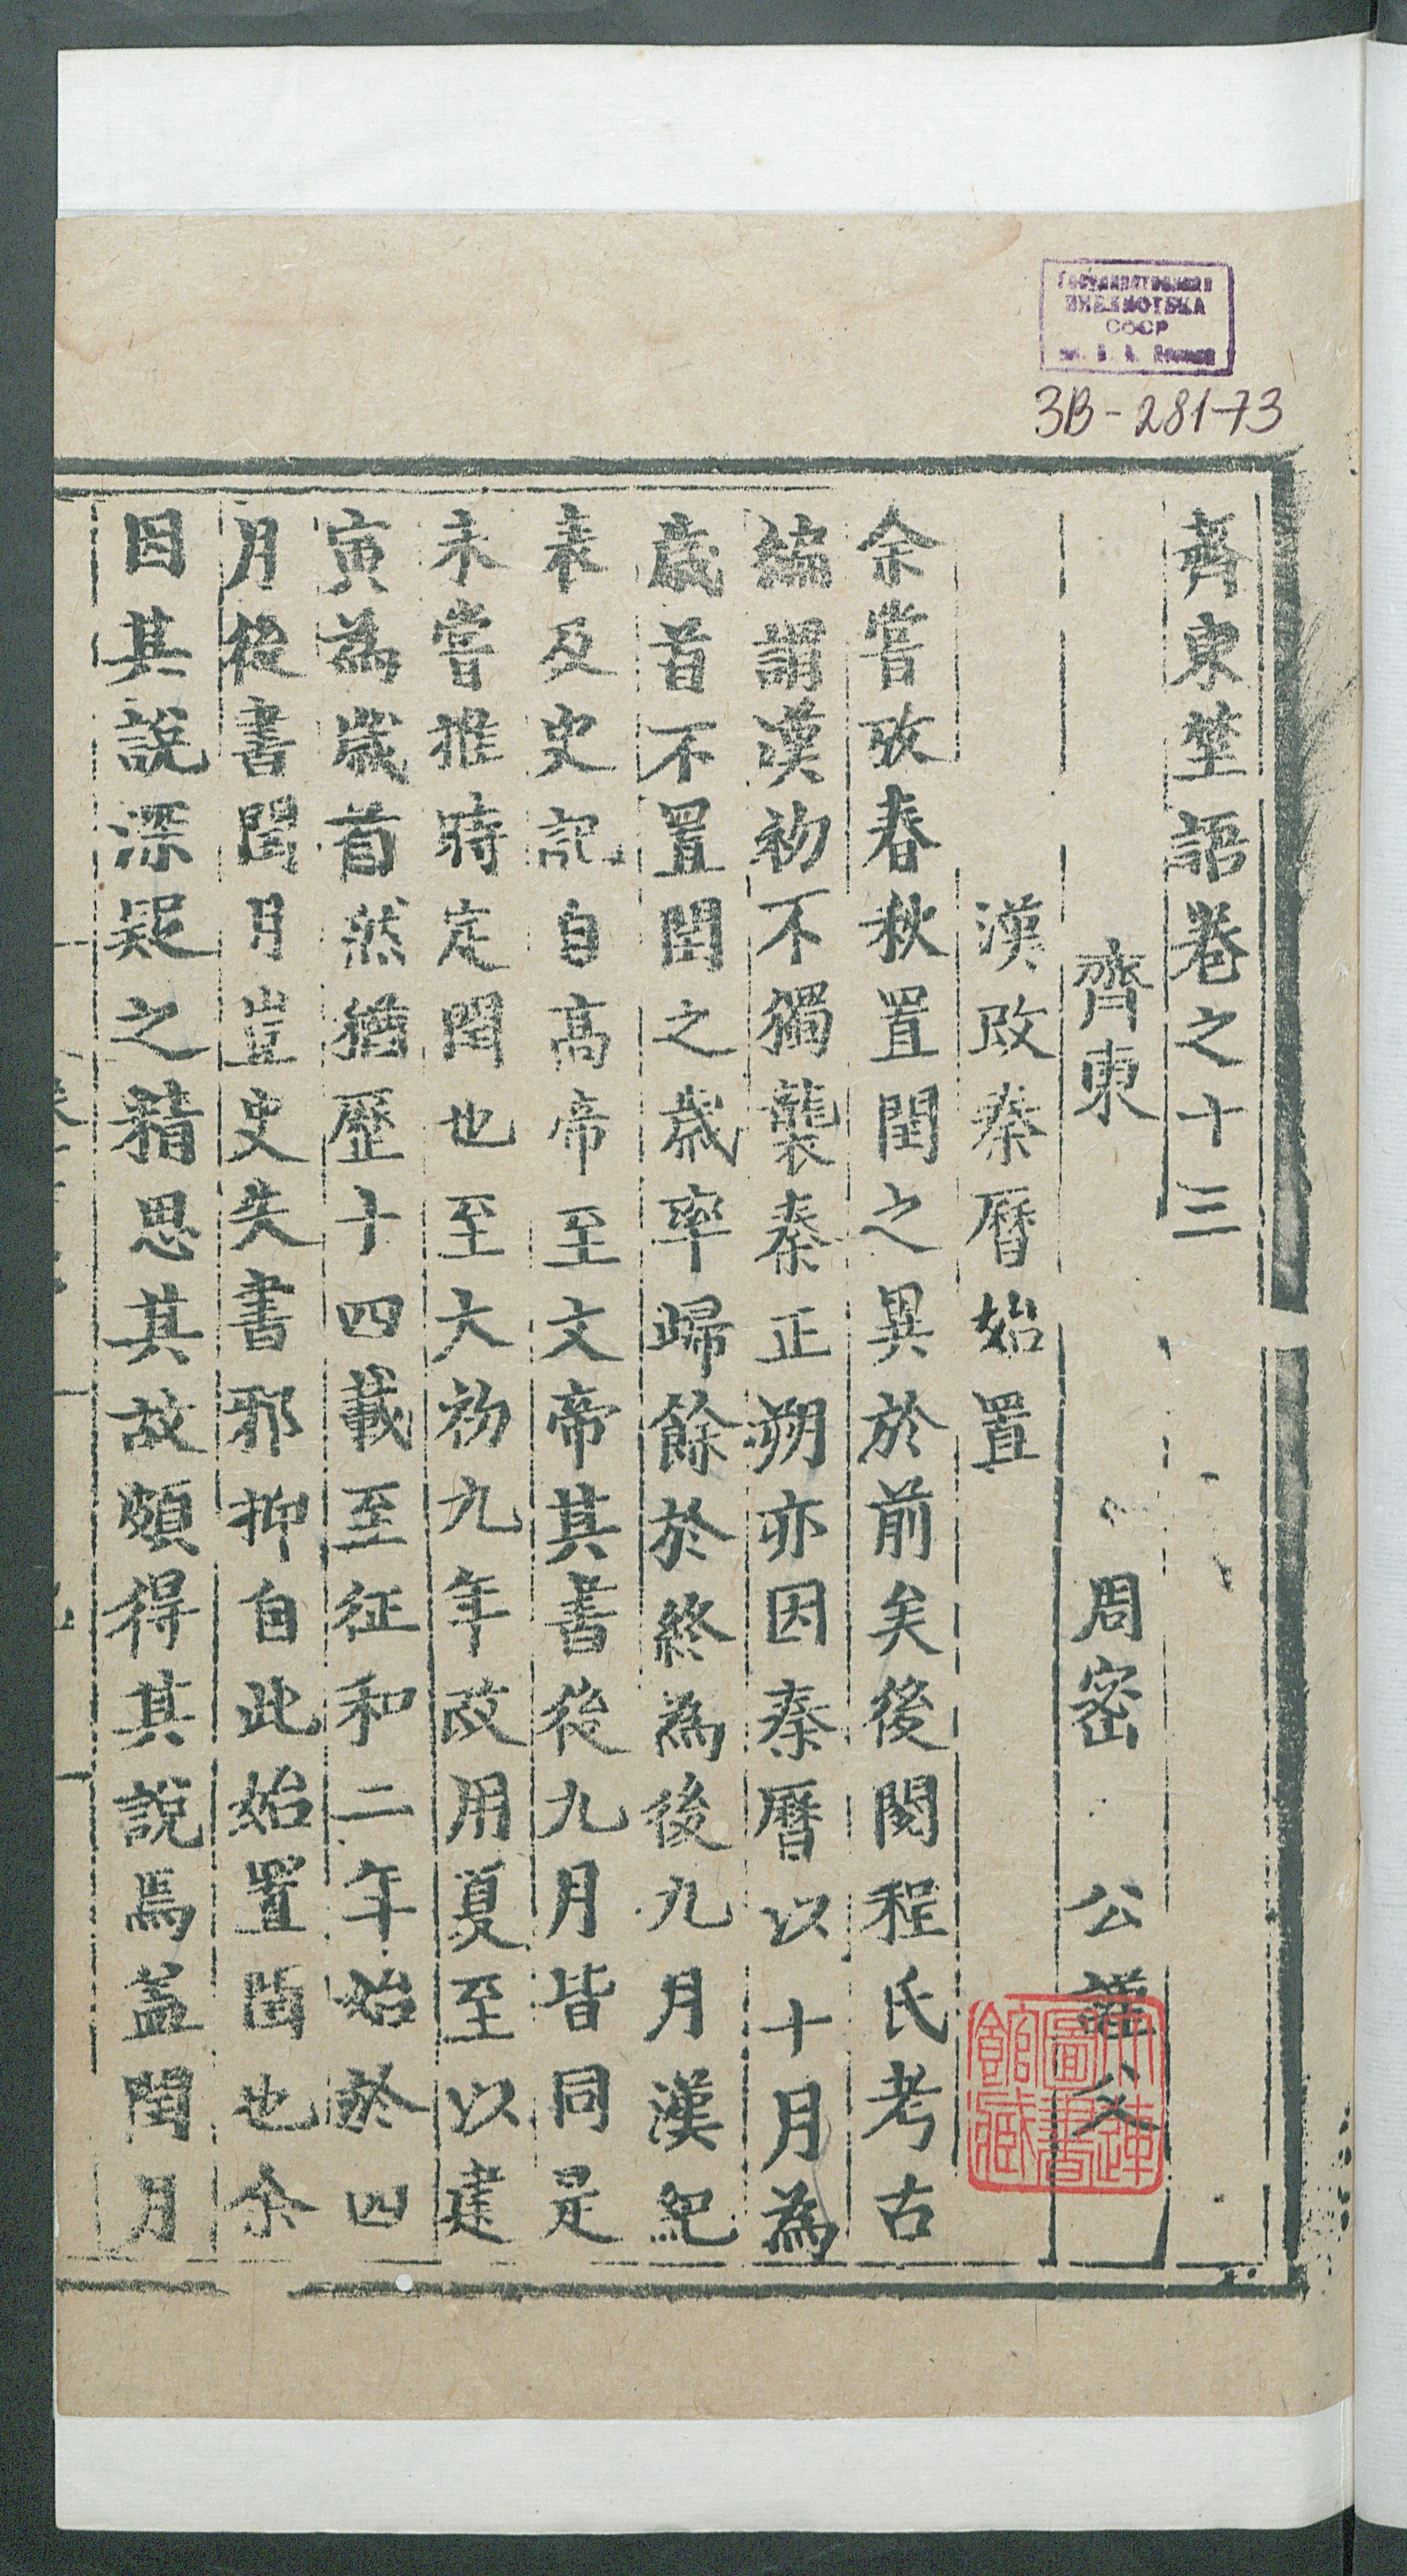 Государственная
БИБЛИОТЕКА
СССР
им. В. И. Ленина
3B-281-73
齊東埜語卷之十三
齊東 周密 公謹父
漢改秦曆始置
余嘗攷春秋置閏之異於前矣後閱程氏考古
編謂漢初不獨襲秦正朔亦因秦曆以十月為
歲首不置閏之歲率歸餘於終為後九月漢紀
表及史記自高帝至文帝其書後九月皆同是
未嘗推時定閏也至大初九年改用夏至以建
寅為歲首然猶歷十四載至征和二年始於四
月後書閏月豈史失書邪抑自此始置閏也余
因其說深疑之精思其故頗得其說焉蓋閏月
大連圖書館藏